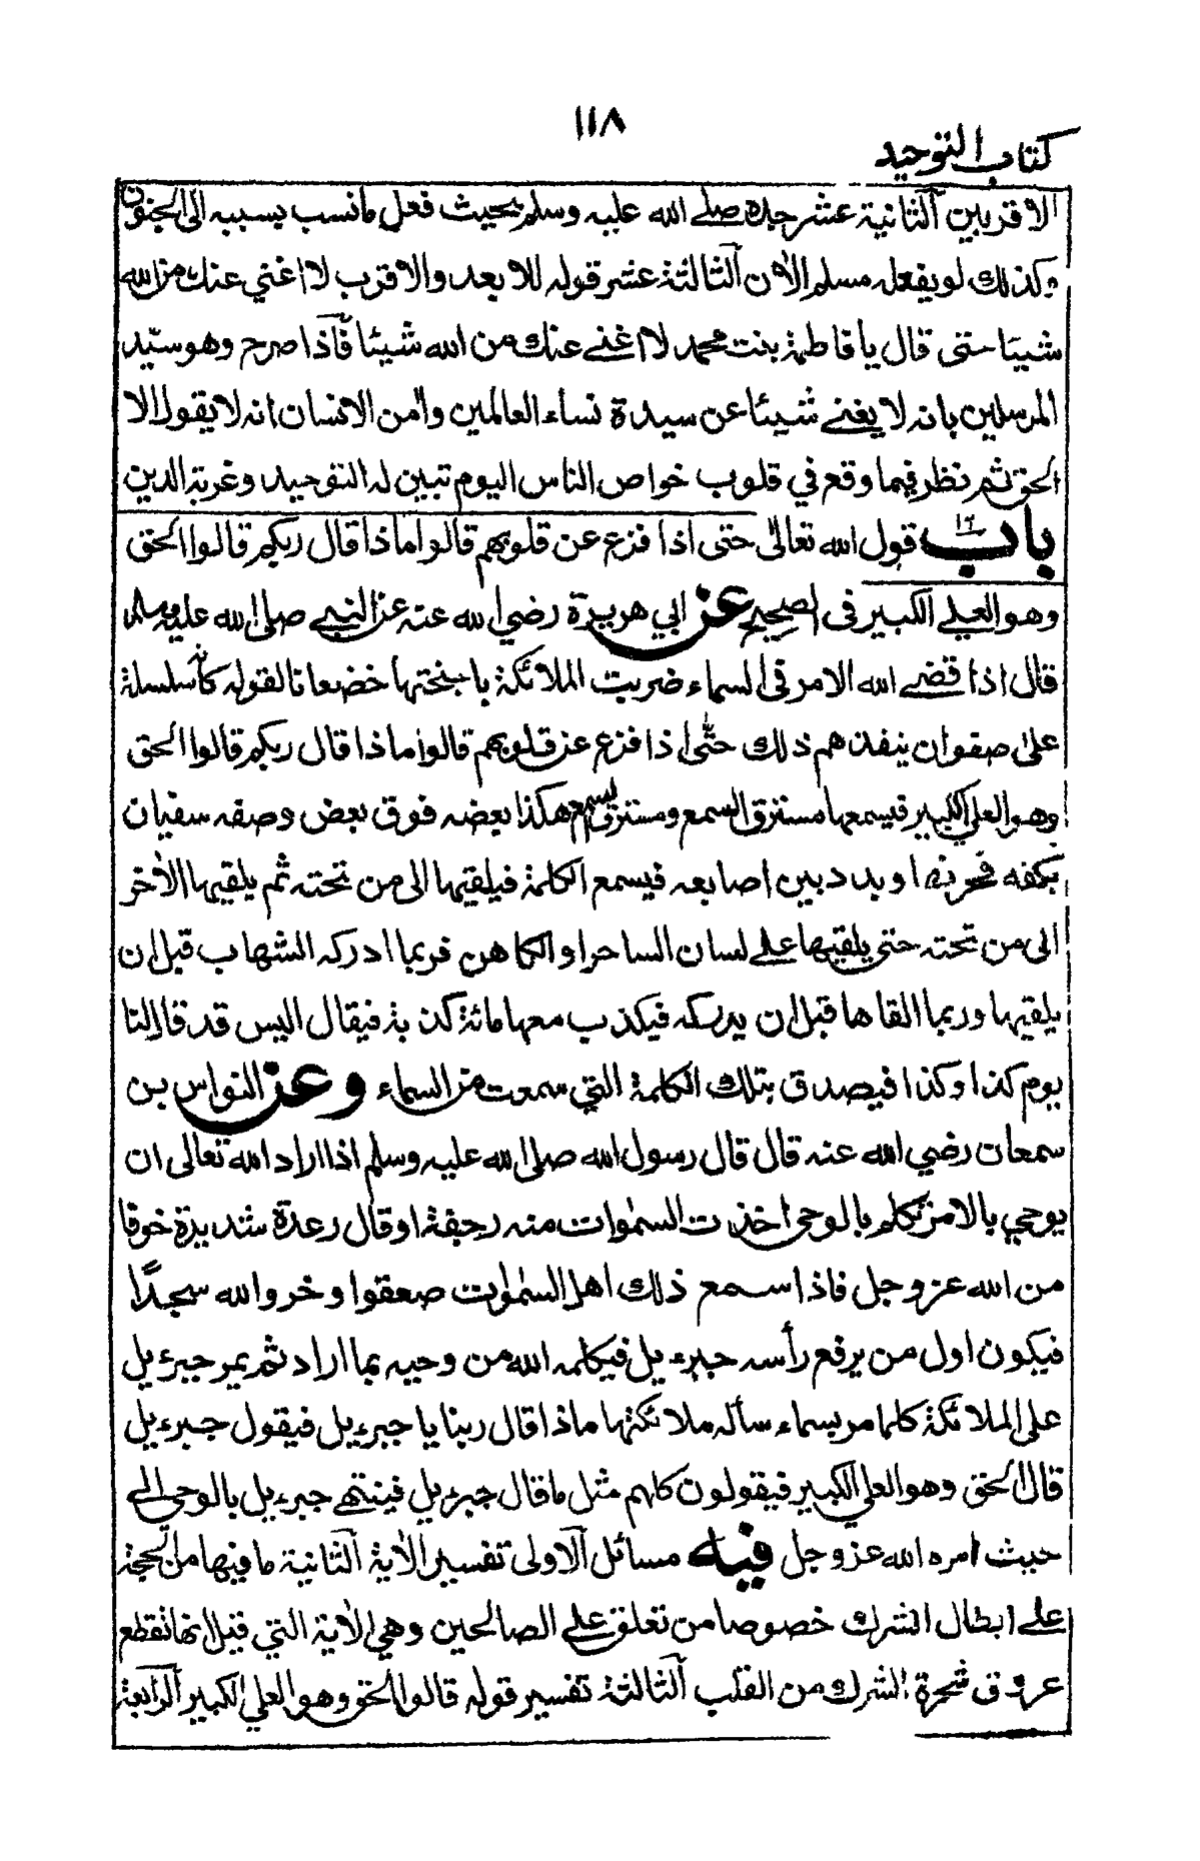 ١١٨
كتاب التوحيد
الاقربين الثانية عشر جده صلے الله عليه وسلم بحيث فعل ما نسب بسببه الى الجنون
وكذلك لو يفعله مسلم الاٰن الثالثة عشر قوله للابعد والاقرب لا اغني عنك من الله
شيئا حتى قال يا فاطمة بنت محمد لا اغنے عنك من الله شيئا فاذا صرح وهو سيّد
المرسلين بانه لا يغنے شيئا عن سيدة نساء العالمين واٰمن الانسان انه لا يقول الا
الحق ثم نظر فيما وقع في قلوب خواص الناس اليوم تبين له التوحيد وغربة الدين
باب قول الله تعالىٰ حتى اذا فزع عن قلوبهم قالوا ماذا قال ربكم قالوا الحق
وهو العلے الكبير فى الصحيح عن ابي هريرة رضي الله عنه عن النبے صلى الله عليه وسلم
قال اذا قضے الله الامر فى السماء ضربت الملائكة باجنحتها خضعانا لقوله كأنه سلسلة
علىٰ صفوان ينفذهم ذلك حتّٰى اذا فزع عن قلوبهم قالوا ماذا قال ربكم قالوا الحق
وهو العلي الكبير فيسمعها مسترق السمع ومسترق السمع هكذا بعضه فوق بعض وصفه سفيان
بكفه فحرفها وبدد بين اصابعه فيسمع الكلمة فيلقيها الى من تحته ثم يلقيها الاٰخر
الى من تحته حتى يلقيها علے لسان الساحر او الكاهن فربما ادركه الشهاب قبل ان
يلقيها وربما القاها قبل ان يدركه فيكذب معها مائة كذبة فيقال اليس قد قال لنا
يوم كذا وكذا فيصدق بتلك الكلمة التي سمعت من السماء وعن النواس بن
سمعان رضي الله عنه قال قال رسول الله صلى الله عليه وسلم اذا اراد الله تعالى ان
يوحي بالامر تكلم بالوحى اخذت السمٰوات منه رجفة او قال رعدة شديدة خوفا
من الله عز وجل فاذا سمع ذلك اهل السمٰوات صعقوا وخروا لله سجدًا
فيكون اول من يرفع رأسه جبرءيل فيكلمه الله من وحيه بما اراد ثم يمر جبرءيل
على الملائكة كلما مر بسماء سأله ملائكتها ماذا قال ربنا يا جبرءيل فيقول جبرءيل
قال الحق وهو العلي الكبير فيقولون كلهم مثل ما قال جبرءيل فينتهے جبرءيل بالوحى الے
حيث امره الله عز وجل فيه مسائل الاولى تفسير الاٰية الثانية ما فيها من الحجة
علے ابطال الشرك خصوصا من تعلق علے الصالحين وهي الاٰية التي قيل انها تقطع
عروق شجرة الشرك من القلب الثالثة تفسير قوله قالوا الحق وهو العلي الكبير الرابعة